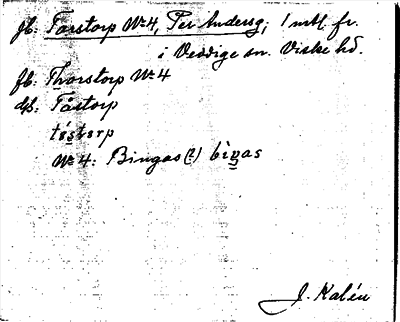 jb: Torstorp No 4, Per Andersg; 1 mtl. fr.
i Veddige sn. Viske hd.
fb: Thorstorp No 4
ds: Tåstorp
tåstorp
No 4: Bingas (?) biŋas
J. Kalén